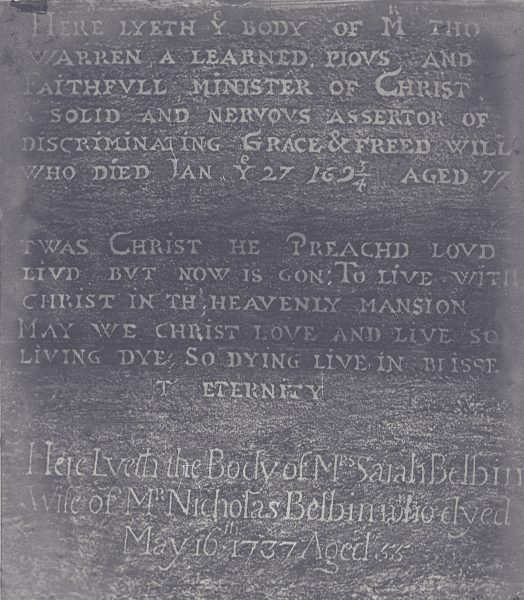 HERE LYETH Yᵉ BODY OF Mᴿ THO
WARREN A LEARNED, PIOVS AND
FAITHFVLL MINISTER OF CHRIST
A SOLID AND NERVOVS ASSERTOR OF
DISCRIMINATING GRACE & FREED WILL
WHO DIED JAN Yᵉ 27 169¾ AGED 77
TWAS CHRIST HE PREACHD LOVD
LIVD BVT NOW IS GON; TO LIVE WITH
CHRIST IN TH HEAVENLY MANSION
MAY WE CHRIST LOVE AND LIVE SO
LIVING DYE SO DYING LIVE IN BLISSE
T ETERNITY
Here Lyeth the Body of Mʳˢ Sarah Belbin
Wife of Mᴿ Nicholas Belbin who dyed
May 16ᵗʰ 1737 Aged